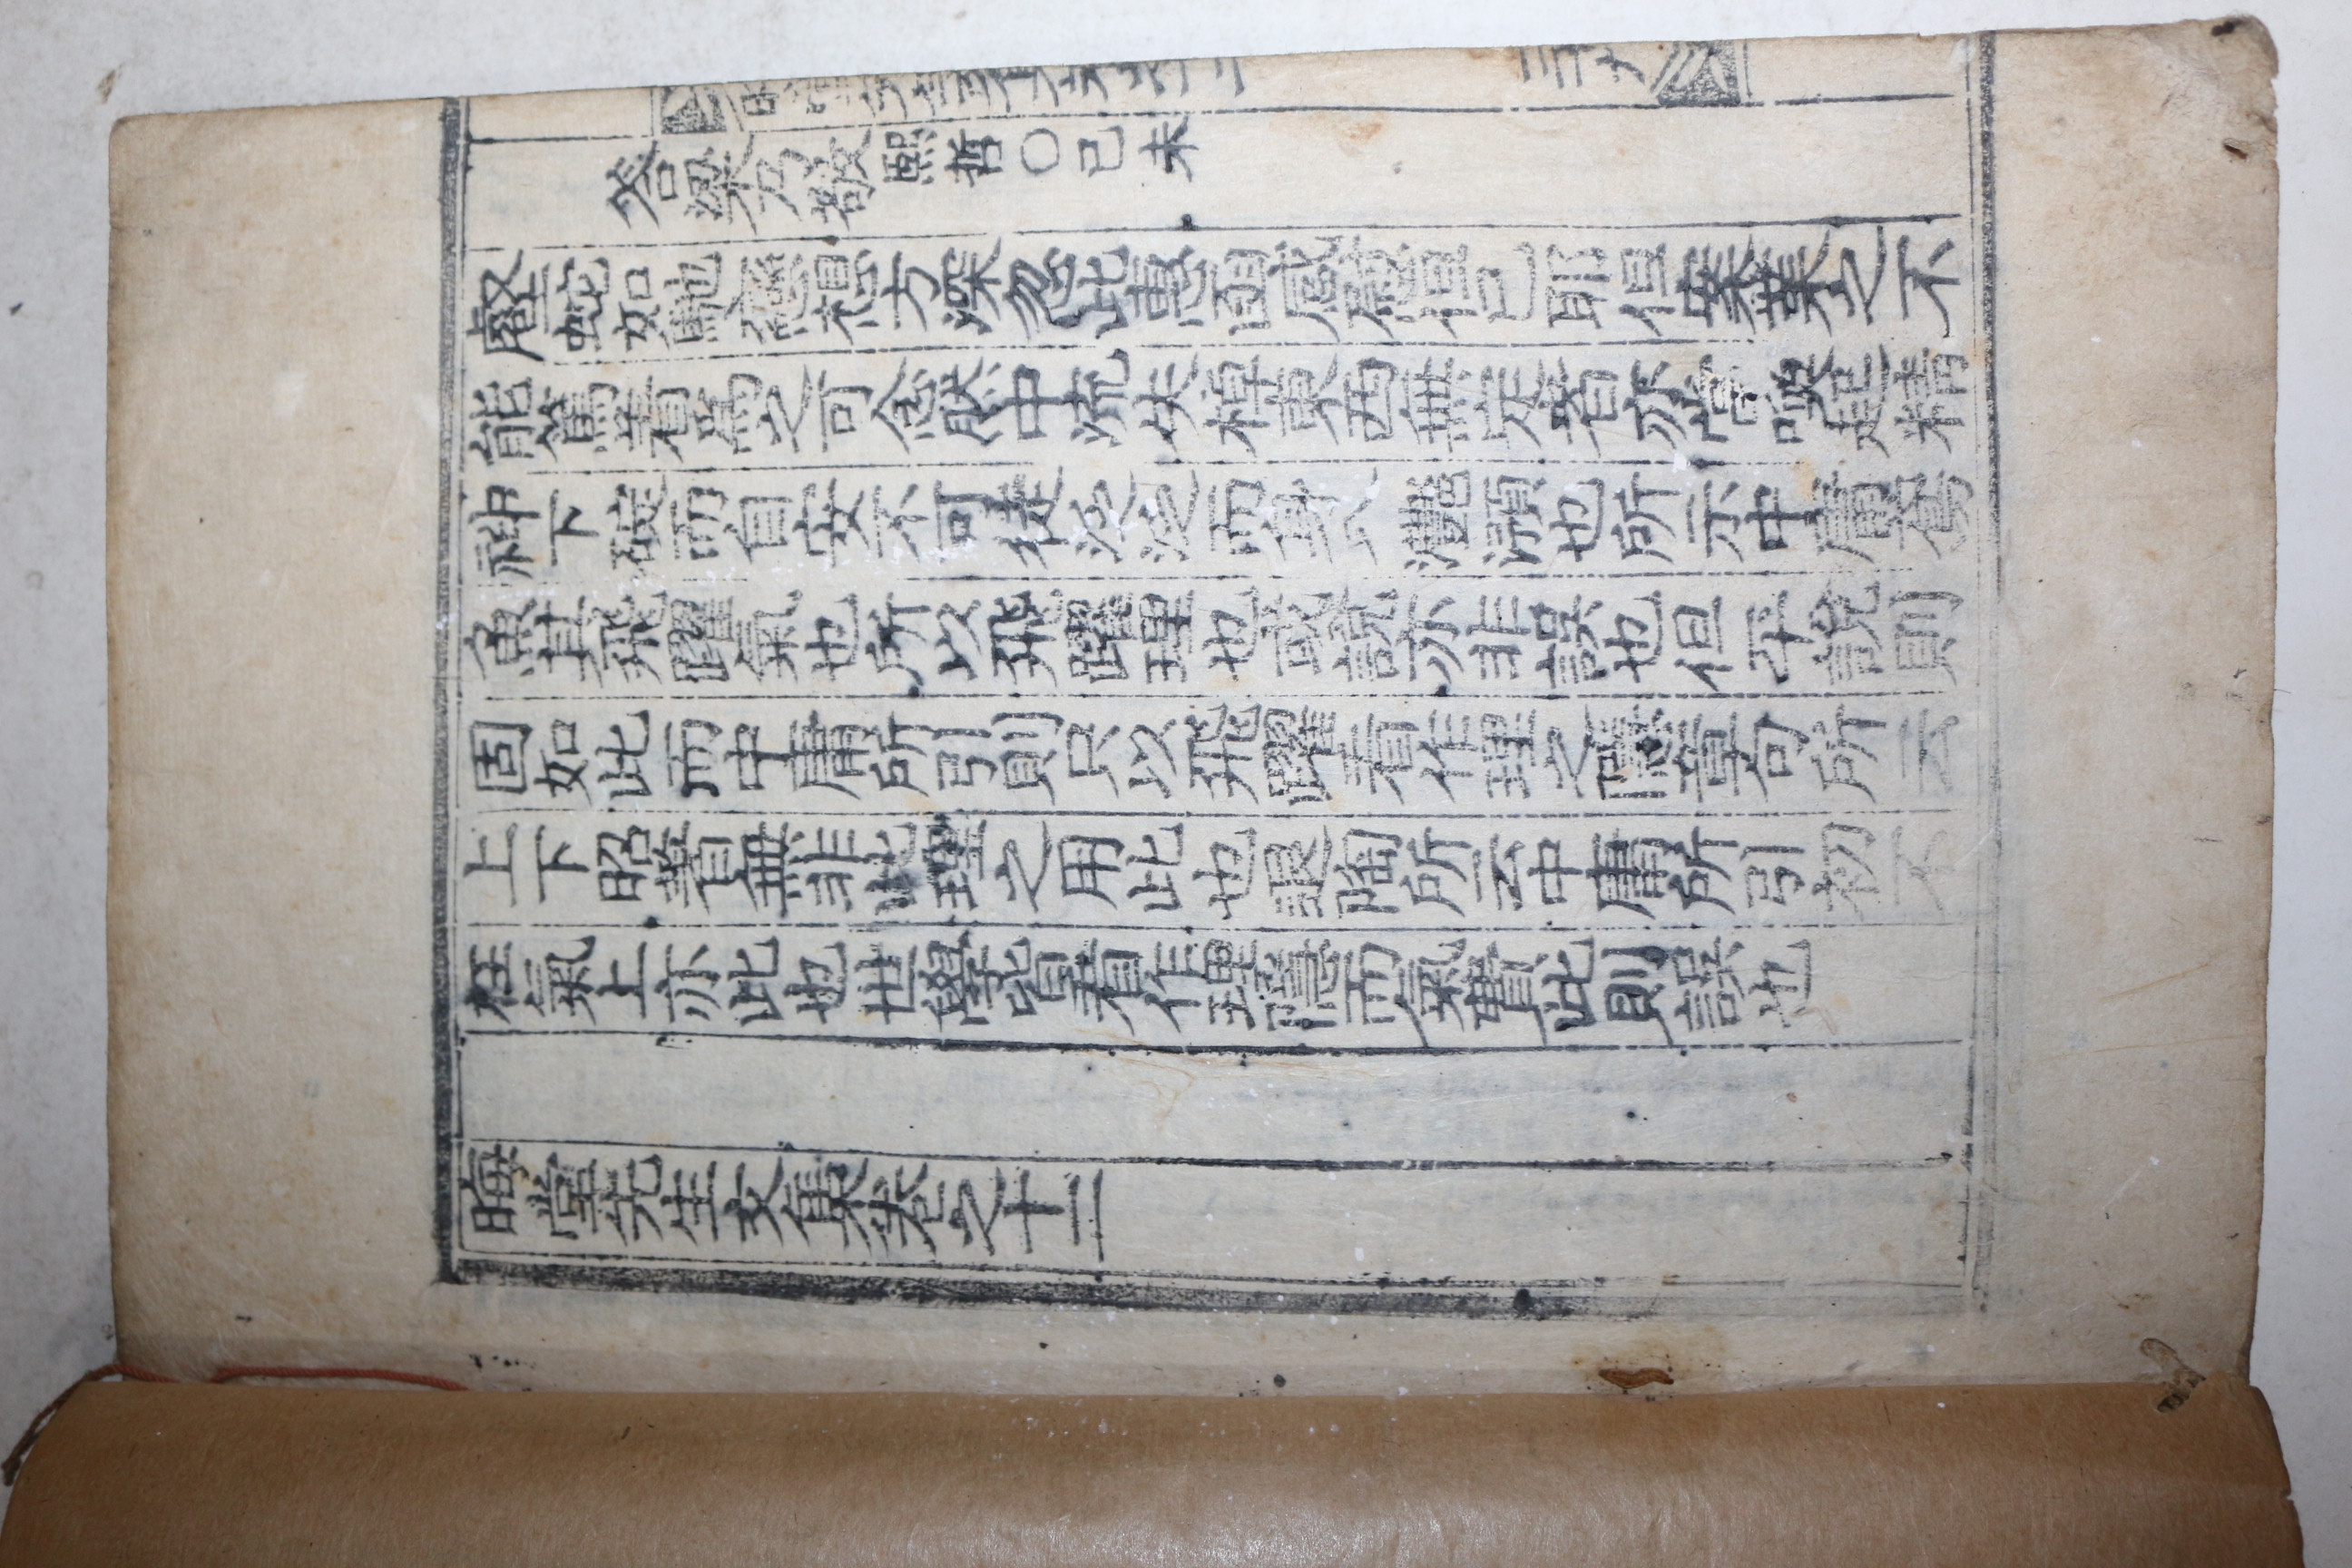 答梁乃敬熙哲○己未
壑蛇如馳戀想方深忽此惠函感慰但已耶但案業之不
能篤着爲之可念然中流失棹東西無定者亦當喚起精
神下碇而自安不可徒泛泛而身入灧澦也所示中庸鳶
魚其飛躍氣也所以飛躍理也或說亦非誤也但平說則
固如此而中庸所引則只以飛躍看作理之隱章句所云
上下昭著無非此理之用此也退陶所云中庸所引初不
在氣上亦此也世學皆看作理隱而氣費此則誤也
晦堂先生文集卷之十二